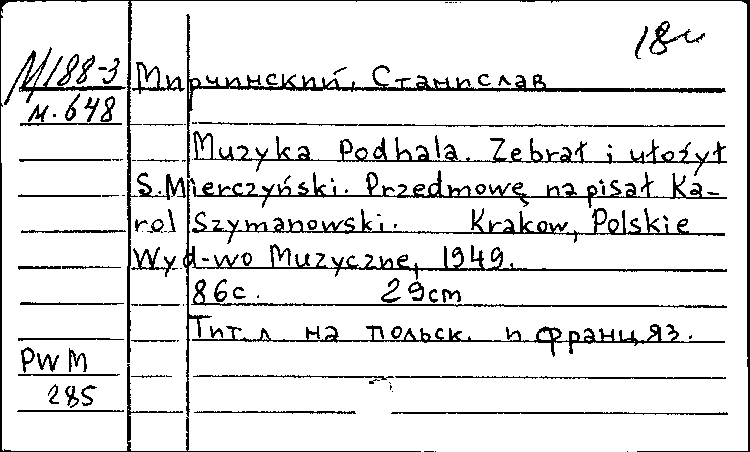 18н
М188-3 Мирчинский, Станислав
м.648
Muzyka Podhala. Zebrał i ułożył
S.Mierczyński. Przedmowę napisał Ka-
rol Szymanowski. Krakow, Polskie
Wyd-wo Muzyczne, 1949.
86с. 29cm
Тит.л на польск. и франц.яз.
PWM
285